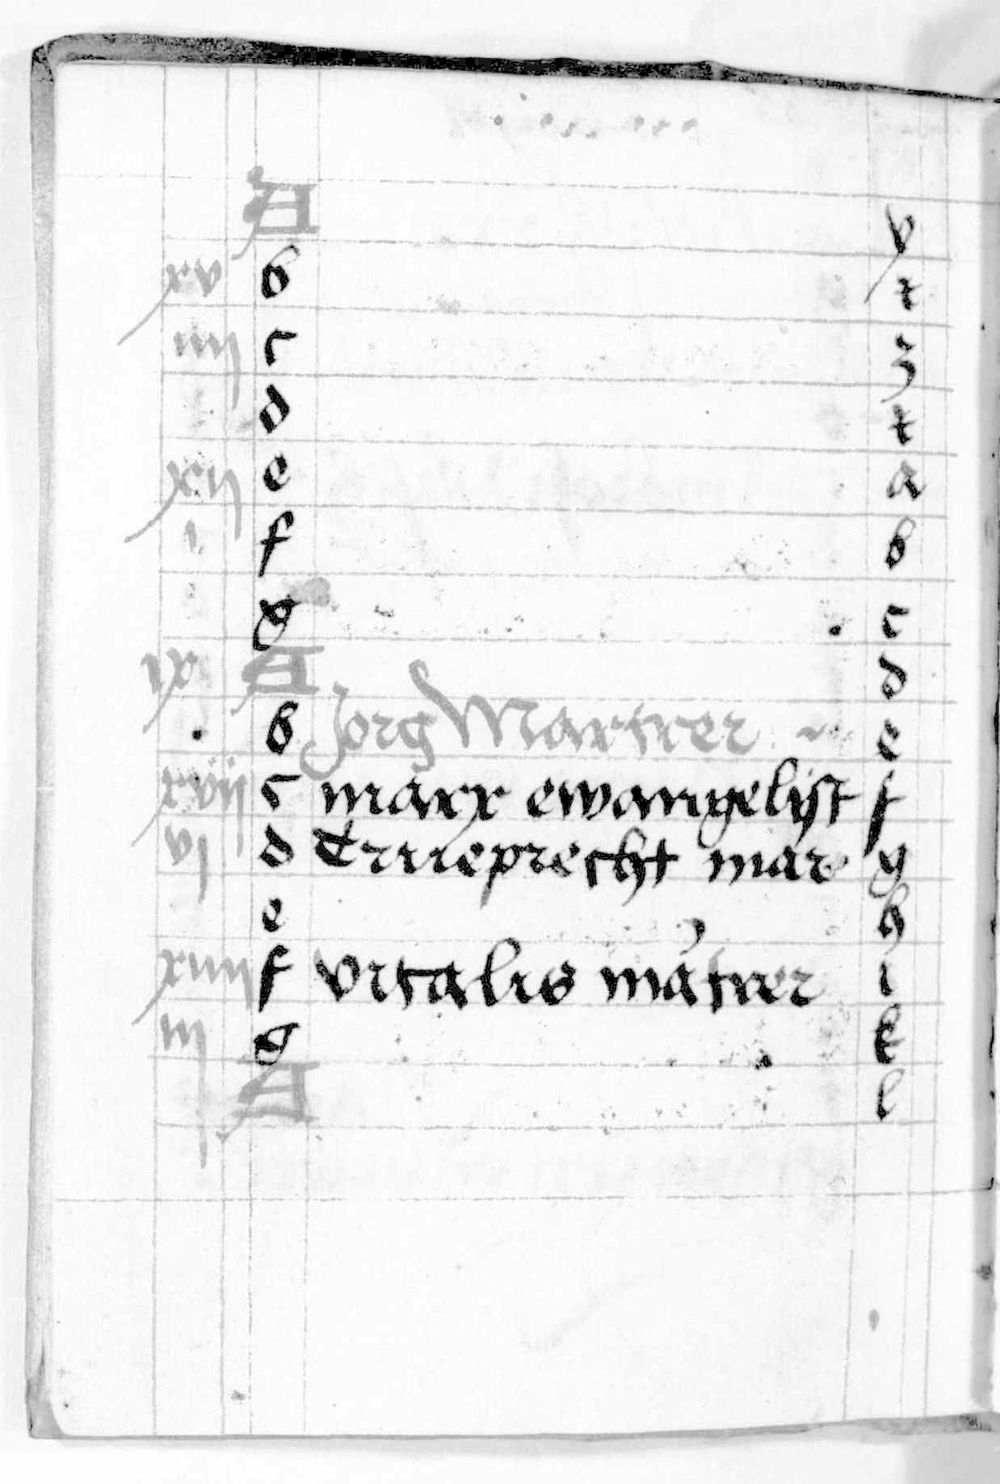 A y
xv b t
iiij c z
d t
xij e a
i f b
g c
ix A d
b Jorg Martrer e
xvij c marx ewangelist f
vj d Trueprecht mar g
e h
xiiij f vitalis martrer i
iij g k
A l